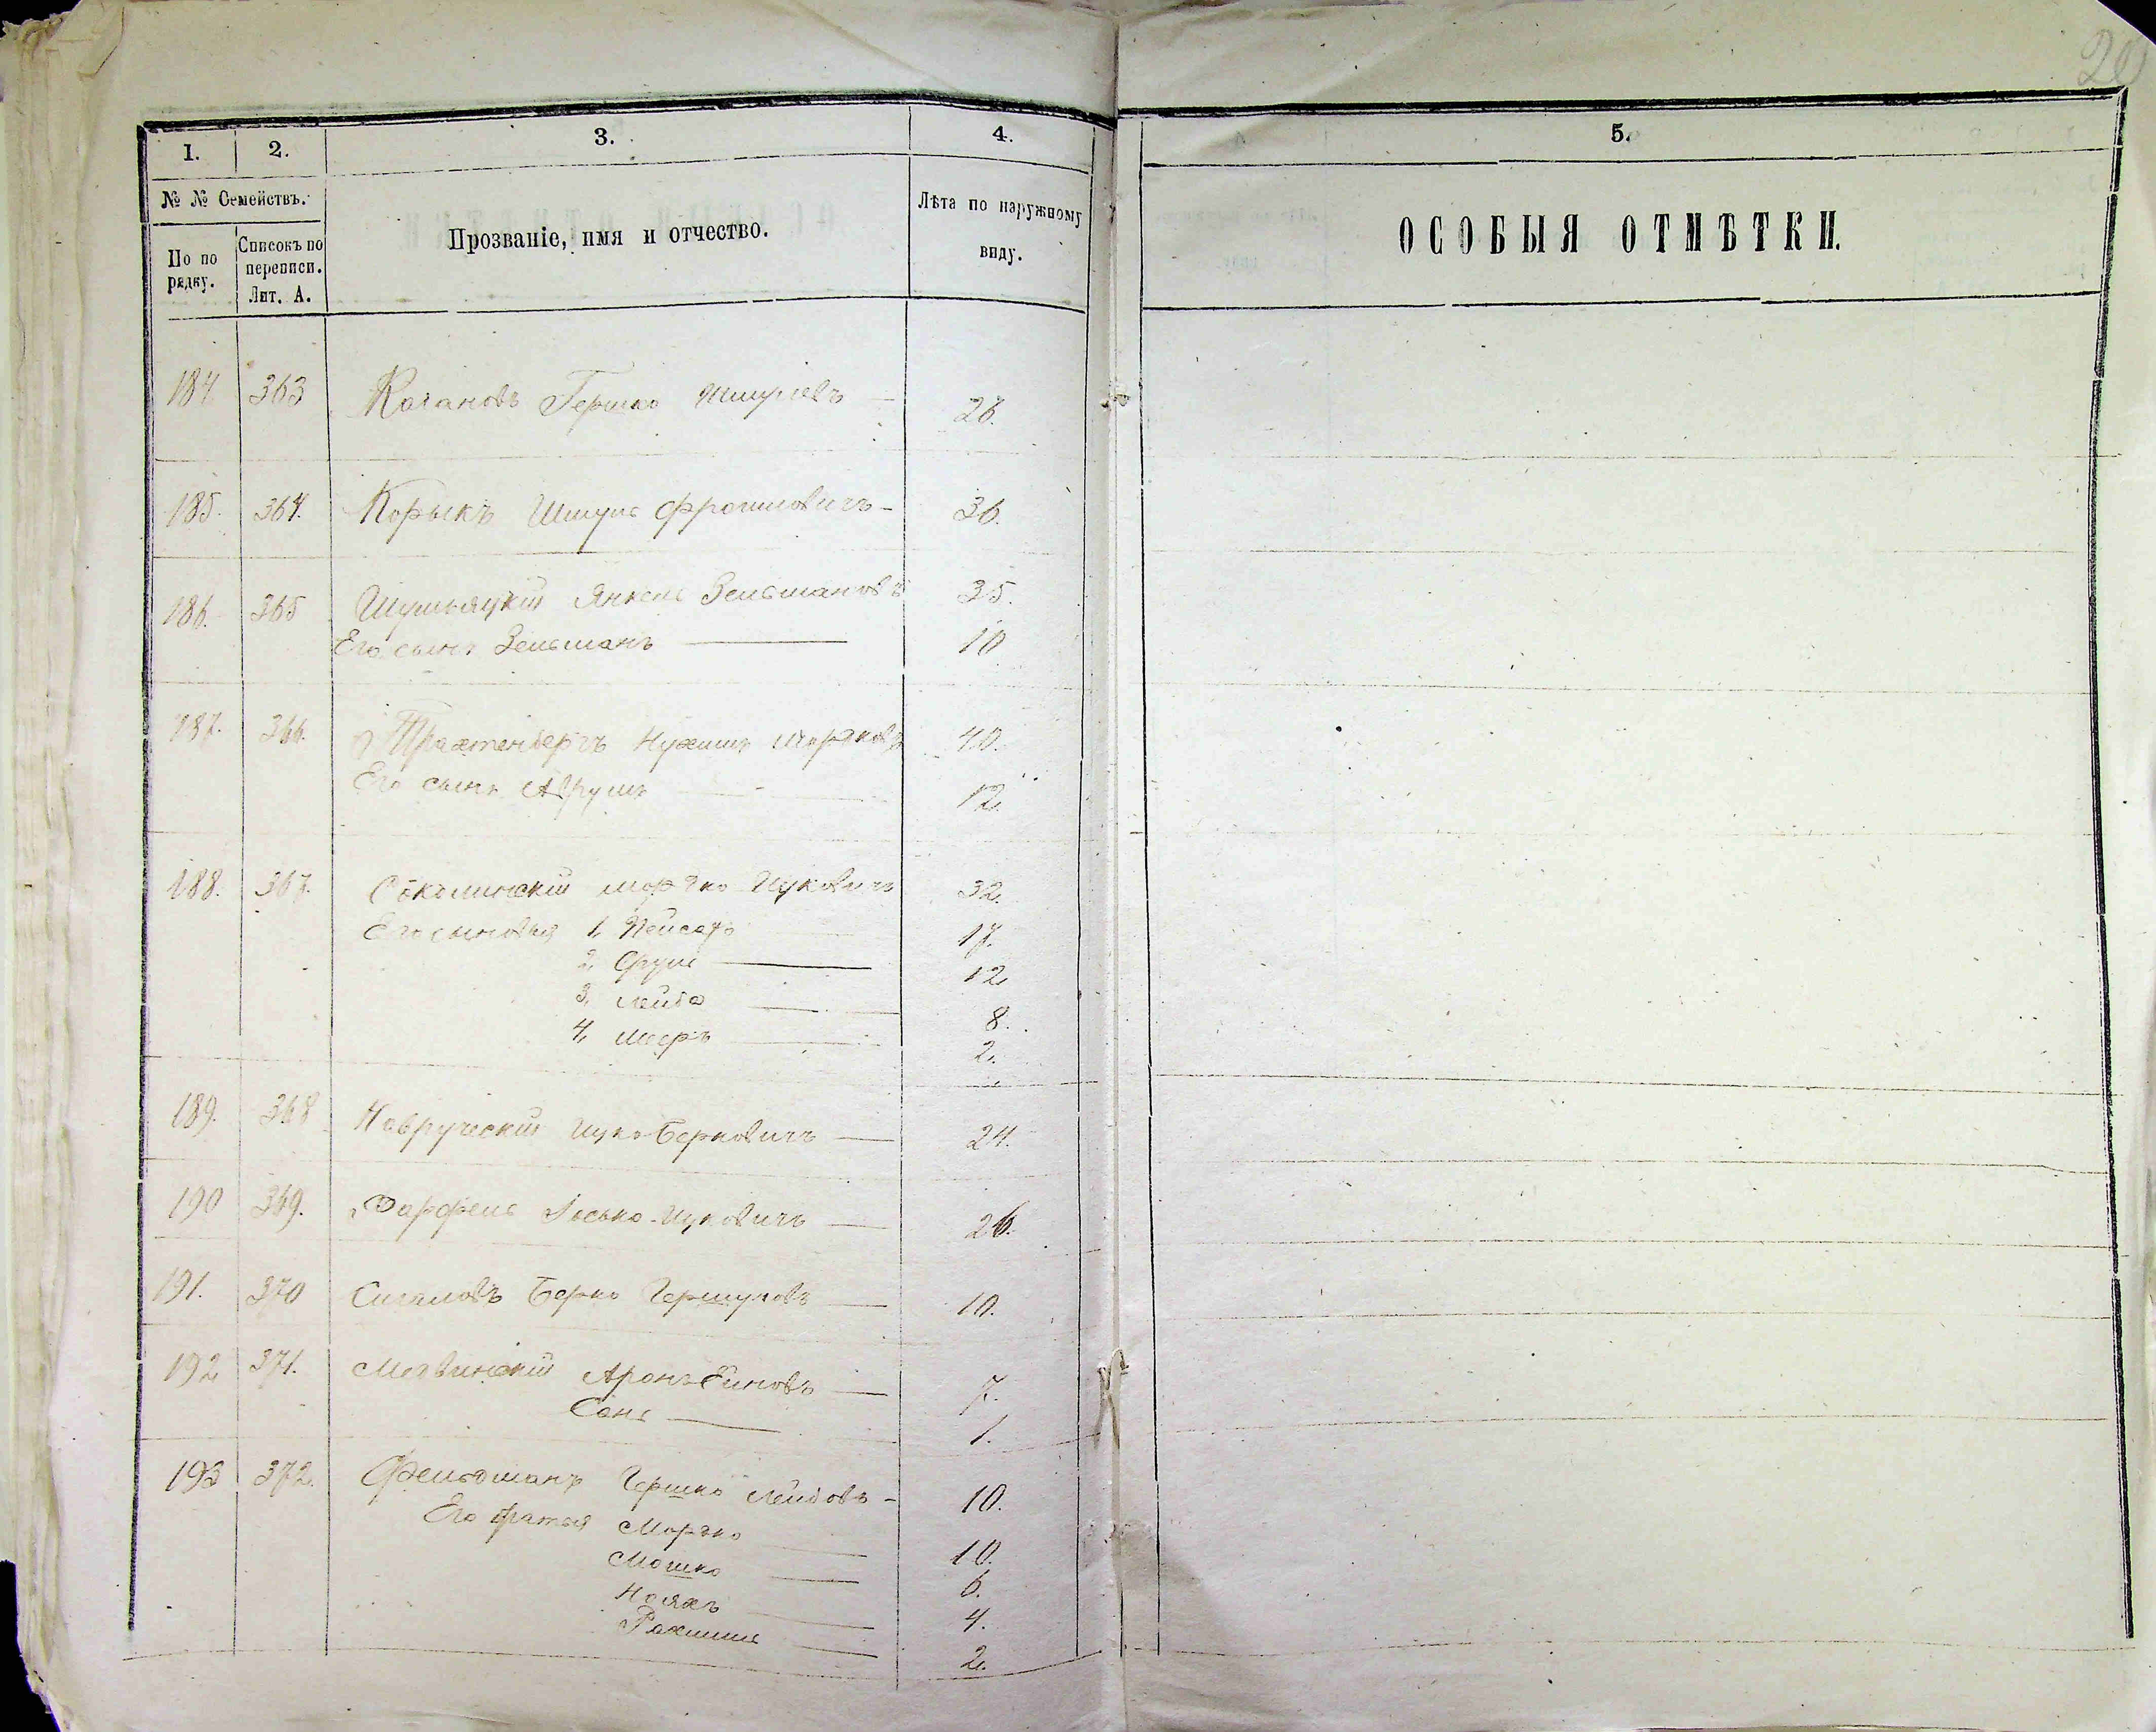 20
1. 2. 3. 4. 5.
№ № Семействъ.
По по рядку.
Списокъ по переписи. Лит. А.
Прозваніе, имя и отчество.
Лѣта по наружному виду.
ОСОБЫЯ ОТМѢТКИ.
184 363 Кагановъ Гершко Шмулевъ — 26.
185. 364. Корыкъ Шмуль Фроимовичъ — 36.
186. 365 Шумъяцкій Янкель Зельмановъ 35.
Его сынъ Зельманъ — 10
187. 366. Трахтенбергъ Нухимъ Мордковъ 40.
Его сынъ Аврумъ — 12.
188. 367. Соколинскій Мордко Ицковичъ 32.
Его сыновья 1, Пейсахъ 17.
2, Сруль — 12
3, Лейба — 8.
4, Мееръ — 2.
189. 368 Навруческій Ицко Берковичъ — 24.
190 369. Іосько Ицковичъ — 26.
191. 370 Сигаловъ Берко Гершуновъ — 10.
192 371. Медвинскій Аронъ — 7.
— 1.
193 372. Фельдманъ Гершко Лейбовъ — 10.
Его братья Мордко — 10.
Мошко — 6.
Нояхъ — 4.
Рахмиль — 2.